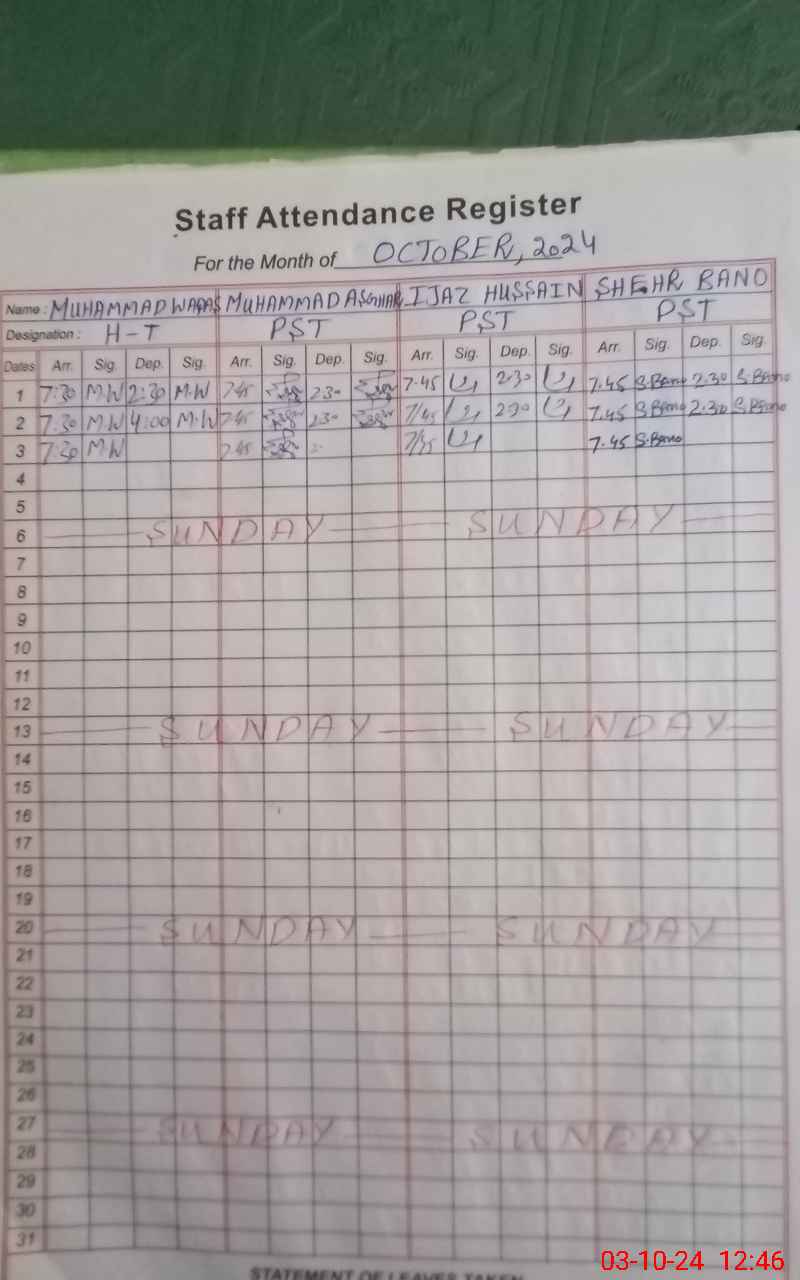 Staff Attendance Register
For the Month of OCTOBER, 2024
Name : MUHAMMAD WAQAS MUHAMMAD ASGHAR IJAZ HUSSAIN SHEHR BANO
Designation : H-T PST PST PST
Dates Arr. Sig. Dep. Sig. Arr. Sig. Dep. Sig. Arr. Sig. Dep. Sig. Arr. Sig. Dep. Sig.
1 7:30 M.W 2:30 M.W 7.45 2.30 7.45 2.30 7.45 S.Bano 2.30 S.Bano
2 7:30 M.W 4:00 M.W 7.45 2.30 7/45 2.30 7.45 S.Bano 2.30 S.Bano
3 7:30 M.W 7.45 7.45 S.Bano
4
5
6 SUNDAY SUNDAY
7
8
9
10
11
12
13 SUNDAY SUNDAY
14
15
16
17
18
19
20 SUNDAY SUNDAY
21
22
23
24
25
26
27 SUNDAY SUNDAY
28
29
30
31
STATEMENT OF LEAVES TAKEN
03-10-24 12:46